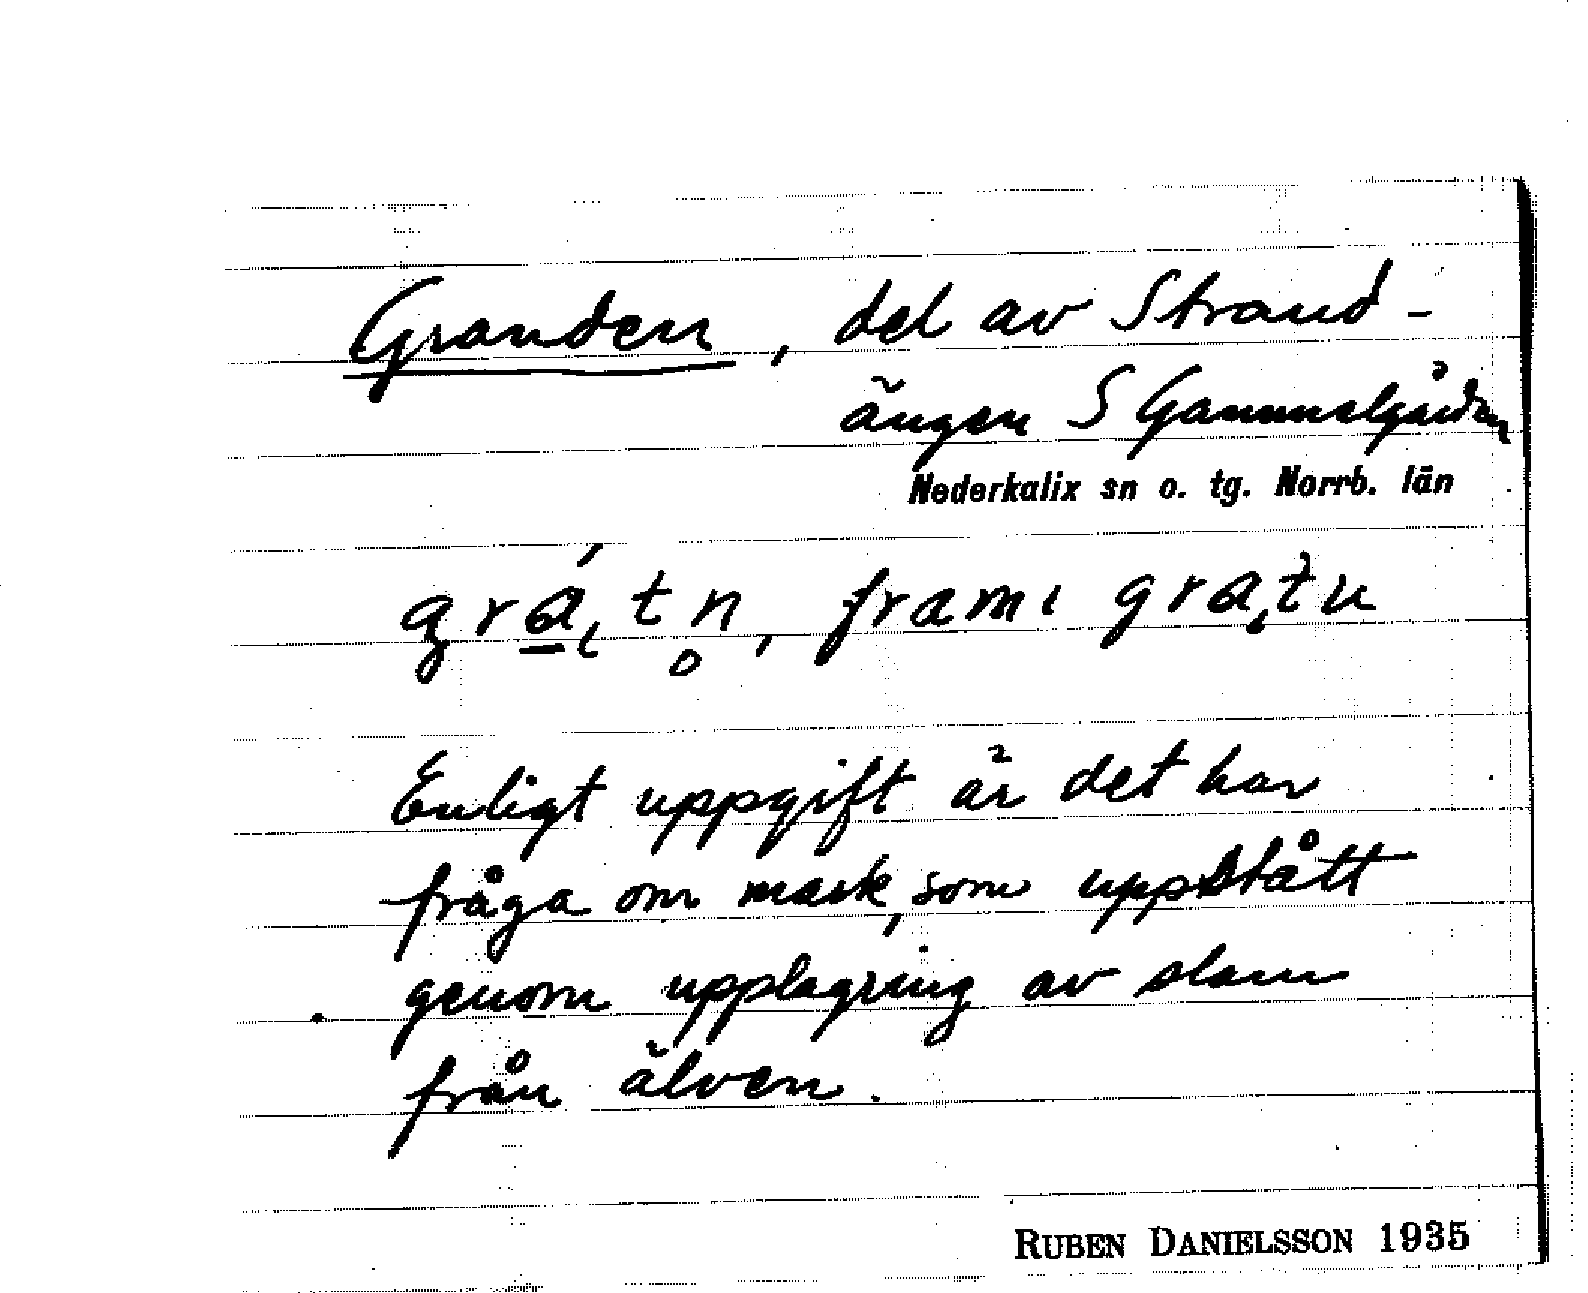 Granden, del av Strand-
ängen S Gammelgården
Nederkalix sn o. tg. Norrb. län
grá̱ɩtn̥, framɩ gratu
Enligt uppgift är det här
fråga om mark, som uppstått
genom upplagring av slam
från älven.
RUBEN DANIELSSON 1935